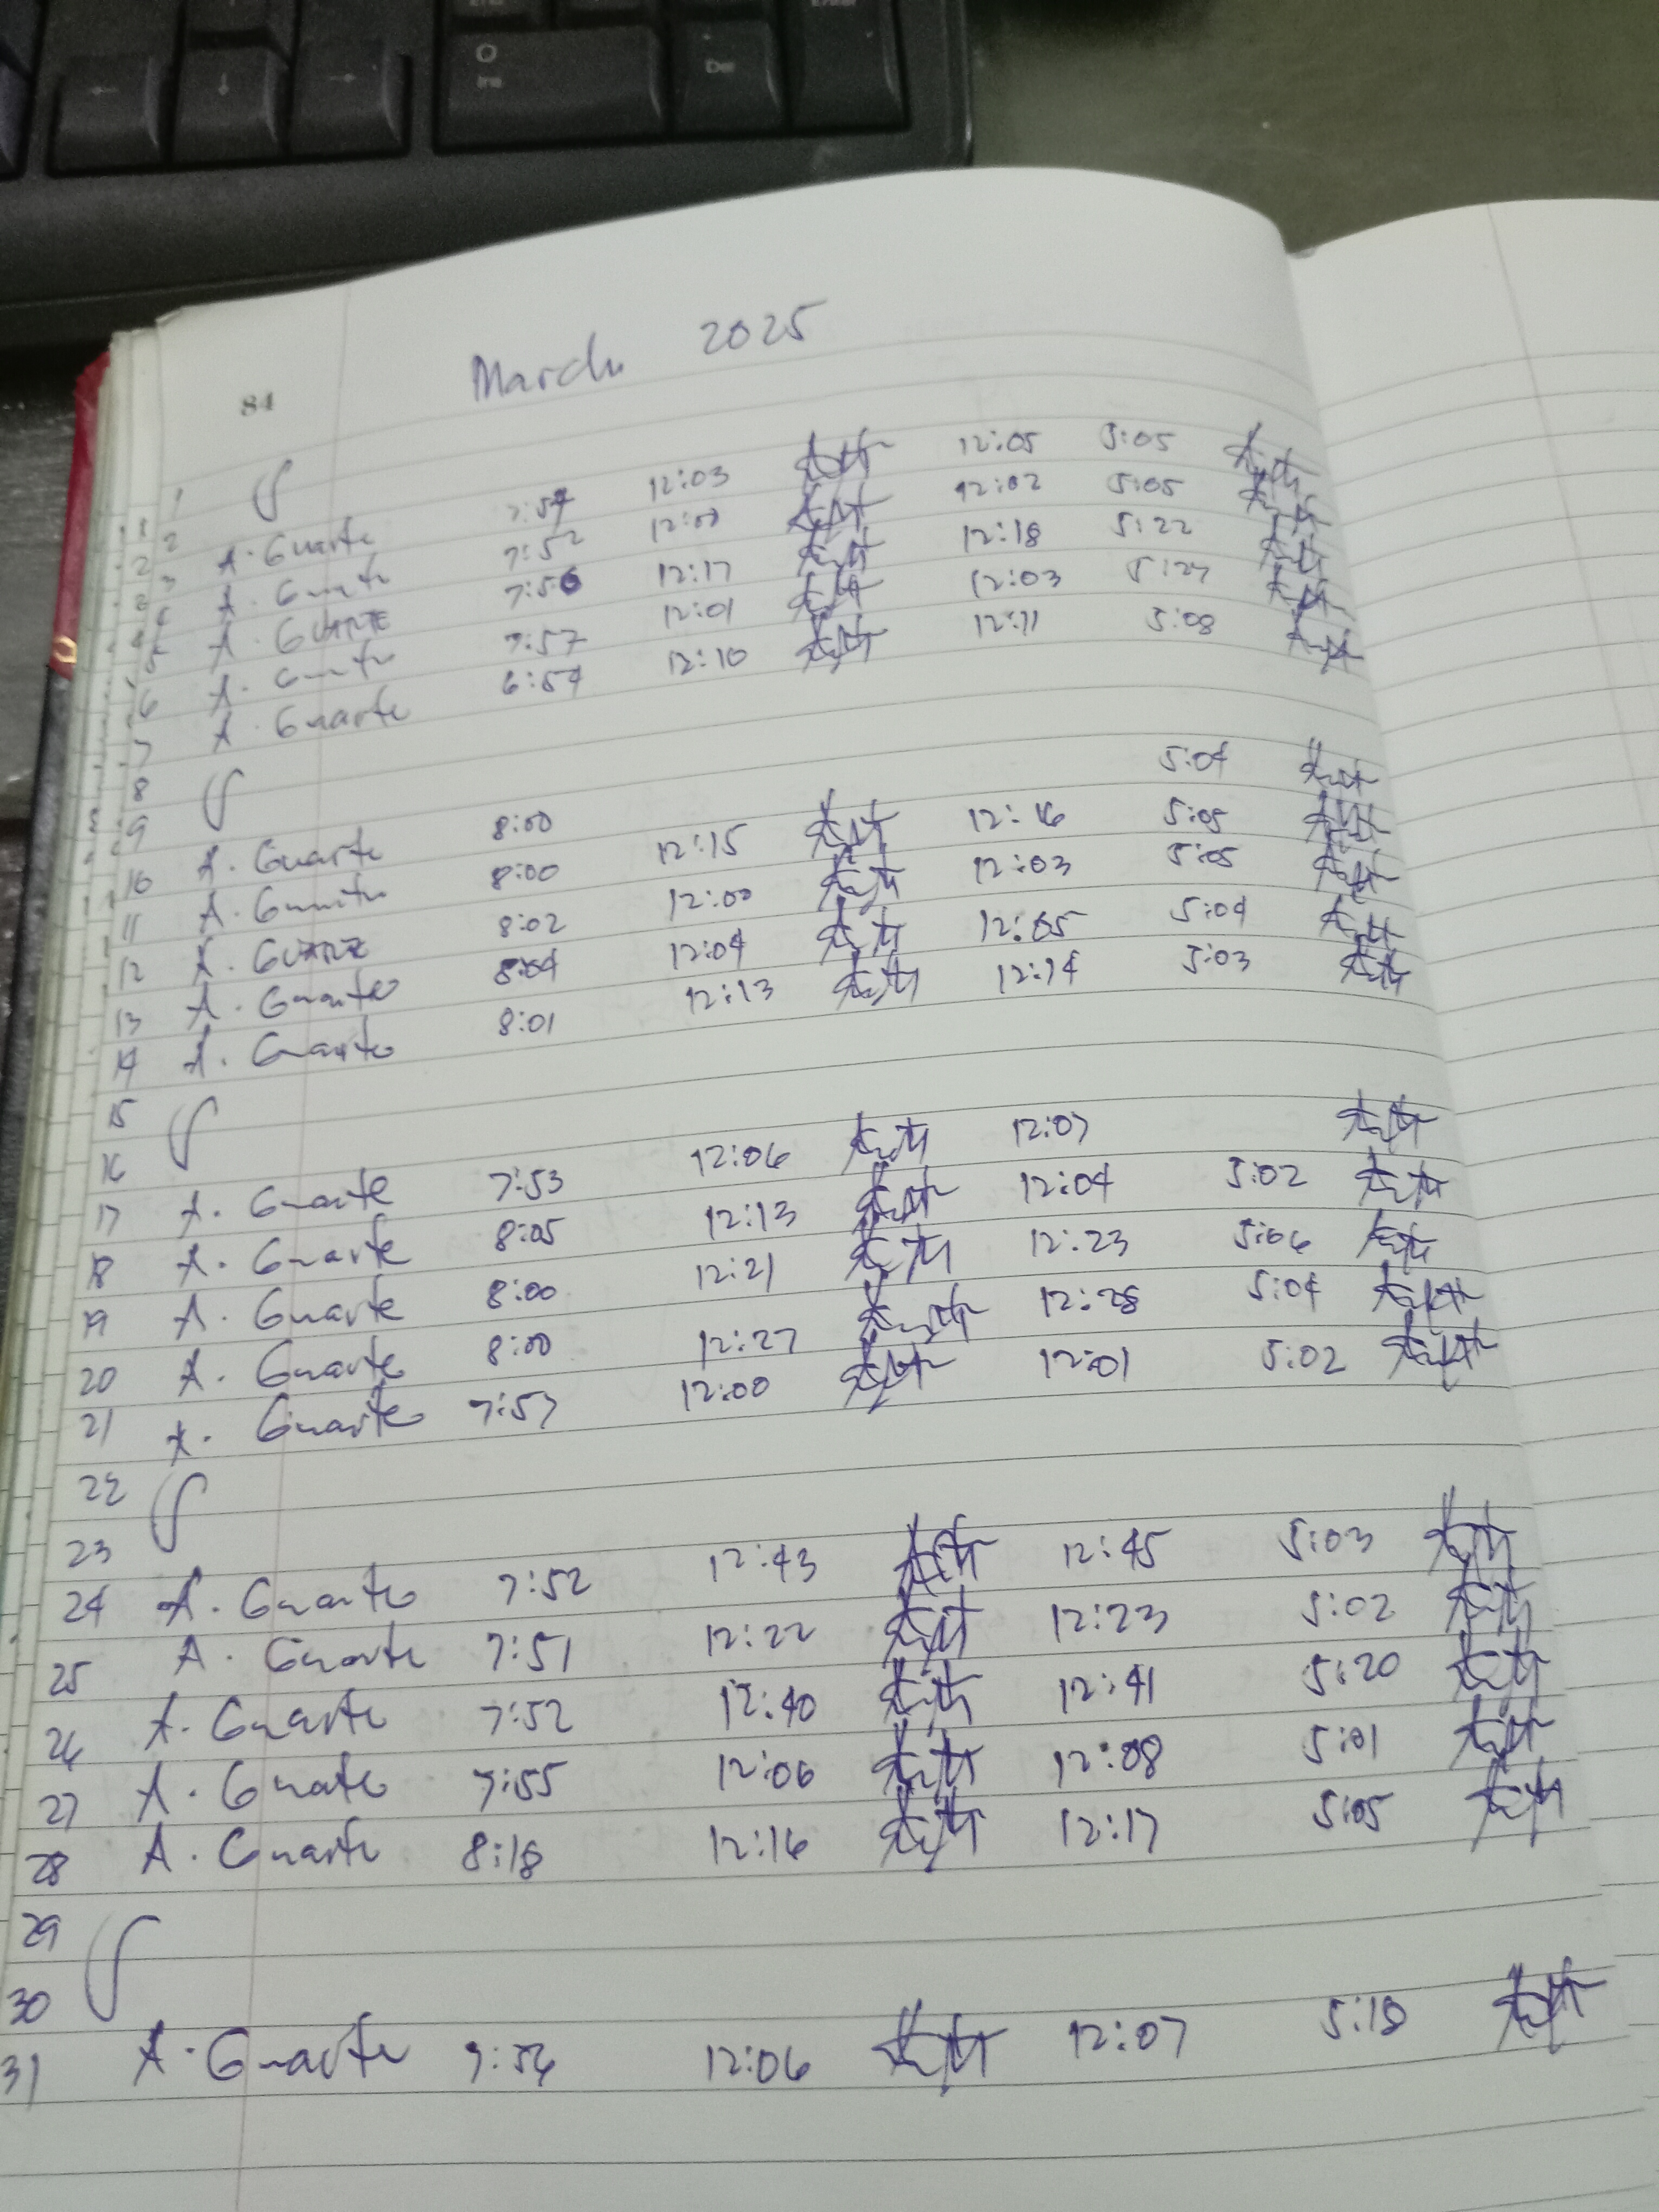 Ins
Del
84
March 2025
1
2
3 A. Guarte 7:54 12:03 12:05 5:05
4 A. Guarte 7:52 12:00 12:02 5:05
5 A. GUARTE 7:56 12:17 12:18 5:22
6 A. Guarte 7:57 12:01 12:03 5:27
7 A. Guarte 6:54 12:10 12:11 5:08
8
9
10 A. Guarte 8:00 5:04
11 A. Guarte 8:00 12:15 12:16 5:05
12 A. GUARTE 8:02 12:00 12:03 5:05
13 A. Guarte 8:04 12:04 12:05 5:04
14 A. Guarte 8:01 12:13 12:14 5:03
15
16
17 A. Guarte 7:53 12:06 12:07
18 A. Guarte 8:05 12:13 12:04 5:02
19 A. Guarte 8:00 12:21 12:23 5:06
20 A. Guarte 8:00 12:27 12:28 5:04
21 A. Guarte 7:57 12:00 12:01 5:02
22
23
24 A. Guarte 7:52 12:43 12:45 5:03
25 A. Guarte 7:51 12:22 12:23 5:02
26 A. Guarte 7:52 12:40 12:41 5:20
27 A. Guarte 7:55 12:06 12:08 5:01
28 A. Guarte 8:18 12:16 12:17 5:05
29
30
31 A. Guarte 7:56 12:06 12:07 5:18